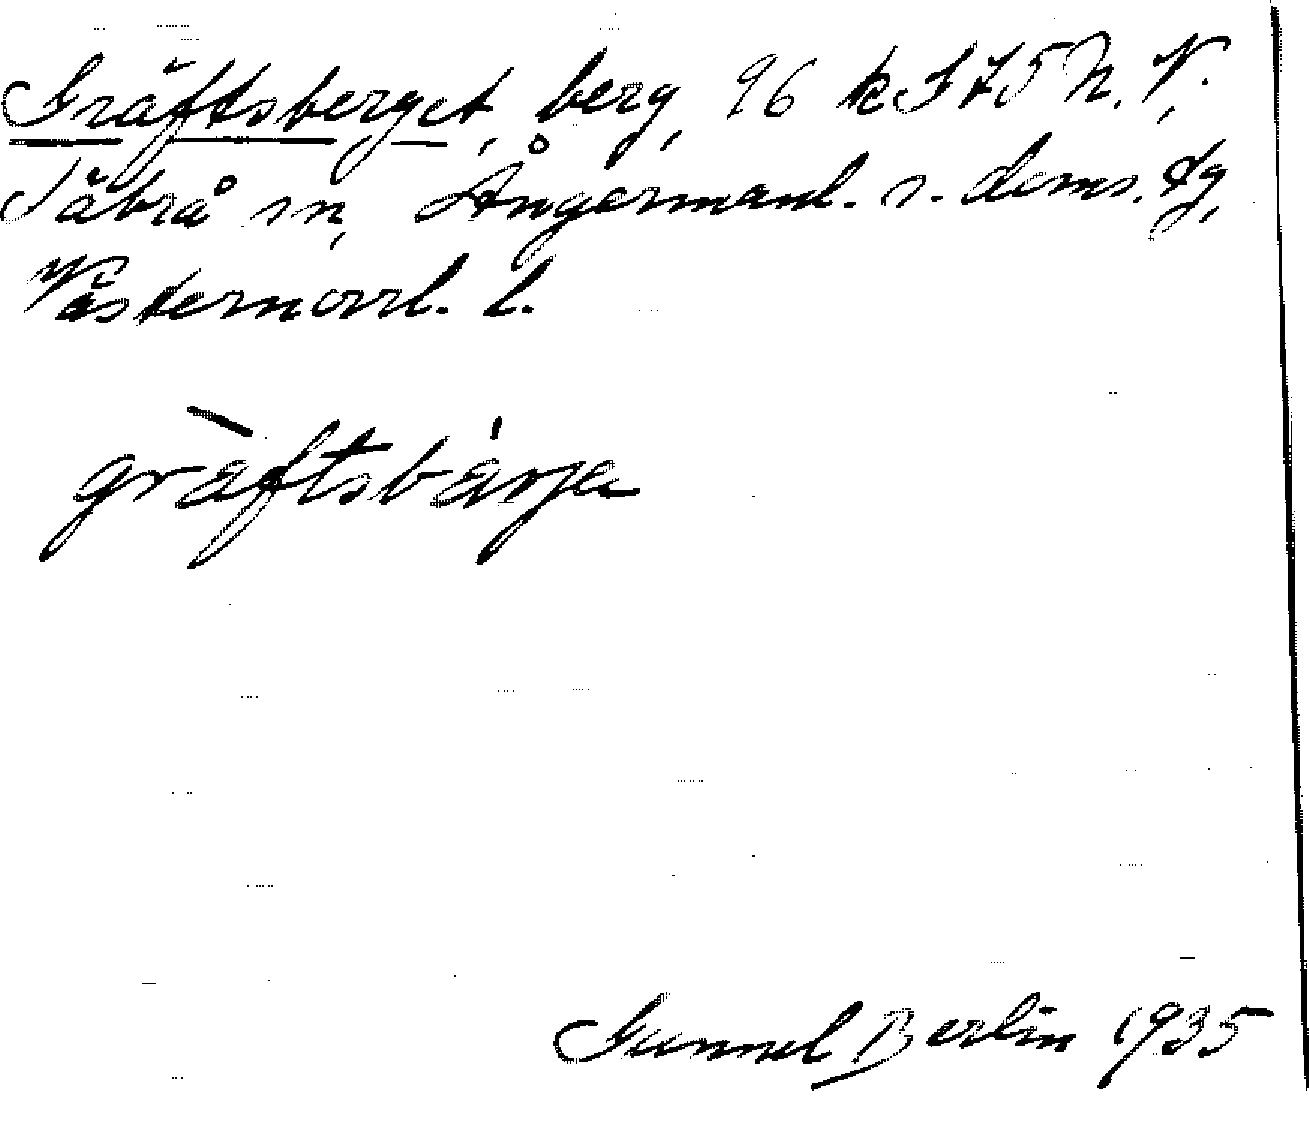 Gräftsberget, berg, 96 k I 7 5 N. V.
Säbrå sn, Ångermanl. s. doms. tg,
Västernorrl. l.
gräftsbärja
Gunnel Berlin 1935